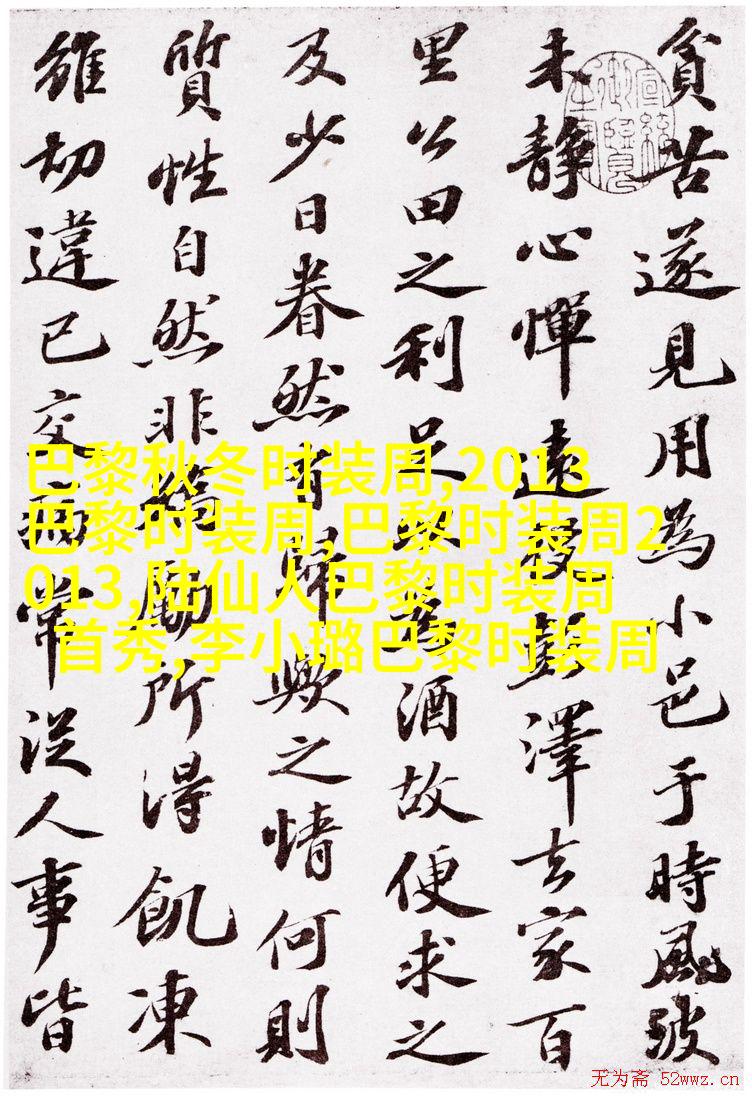 貧苦遂見用為小邑于時風波
未靜心憚遠役彭澤去家百
里公田之利足以為酒故便求之
及少日眷然有歸歟之情何則
質性自然非矯勵所得飢凍
雖切違己交病常從人事皆
巴黎秋冬时装周,2013
巴黎时装周,巴黎时装周2
013,陆仙人巴黎时装周
首秀,李小璐巴黎时装周
无为斋 52wwz.cn